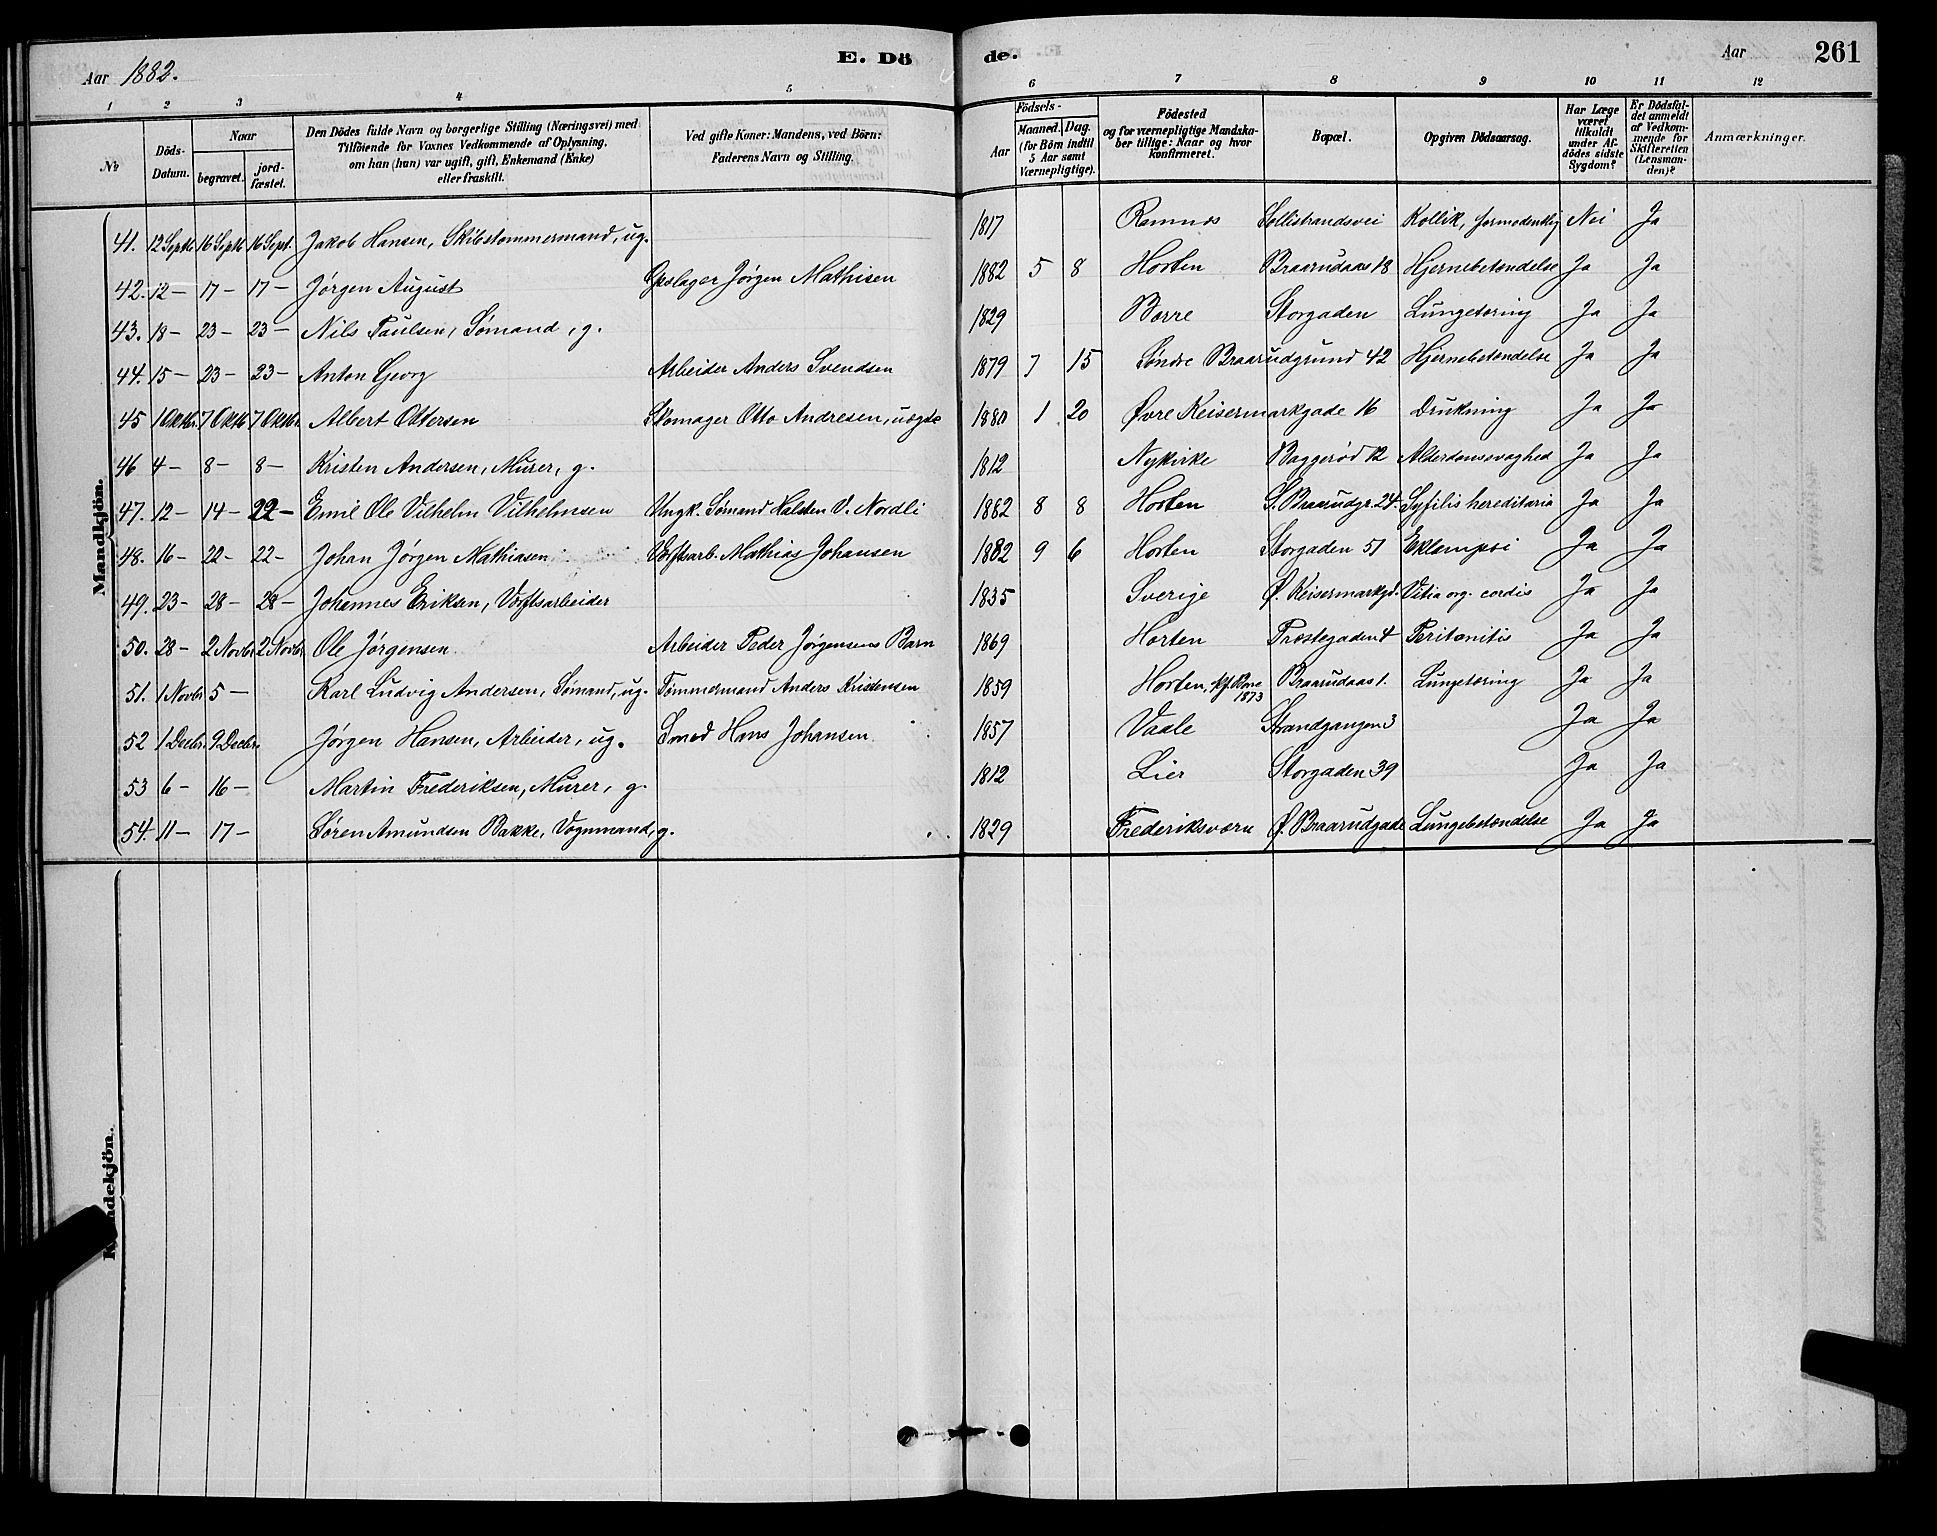 Aar 1882. E. Döde. Aar 261
1 2 3 4 5 6 7 8 9 10 11 12
№ Döds-Datum. Naar begravet. jord-fæstet. Den Dödes fulde Navn og borgerlige Stilling (Næringsvei) med Tilföiende for Voxnes Vedkommende af Oplysning, om han (hun) var ugift, gift, Enkemand (Enke) eller fraskilt. Ved gifte Koner: Mandens, ved Börn: Faderens Navn og Stilling. Födsels- Aar Maaned. Dag. (for Börn indtil 5 Aar samt Værnepligtige). Födested og for værnepligtige Mandskaber tillige: Naar og hvor konfirmeret. Bopæl. Opgiven Dödsaarsag. Har Læge været tilkaldt under Afdödes sidste Sygdom? Er Dödsfaldet anmeldt af Vedkommende for Skifteretten (Lensmanden)? Anmærkninger.
Mandkjön.
41. 12 Septb. 16 Septb 16 Sept. Jakob Hansen, Skibstømmermand, ug. 1817 Ramnæs Sollistrandsvei Kollik, formodentlig Nei Ja
42. 12 – 17 – 17 – Jørgen August Repslager Jørgen Mathisen 1882 5 8 Horten Braarudaas 18 Hjernebetændelse Ja Ja
43. 18 – 23 – 23 – Nils Paulsen, Sømand, g. 1829 Borre Storgaden Lungetæring Ja Ja
44. 15 – 23 – 23 – Anton Georg Arbeider Anders Svendsen 1879 7 15 Søndre Braarudgrund 42 Hjernebetændelse Ja Ja
45 1 Oktbr. 7 Oktb 7 Oktbr. Albert Ottersen Skomager Otto Andresen, uægte 1880 1 20 Øvre Keisermarkgade 16 Drukning Ja Ja
46 4 – 8 – 8 – Kristen Andersen, Murer, g. 1812 Nykirke Baggerød 12 Alderdomssvaghed Ja Ja
47. 12 – 14 – 22 – Emil Ole Vilhelm Vilhelmsen Ungk. Sømand Halsten V. Nordli 1882 8 8 Horten S. Braarudgr. 24. Syfilis hereditaria Ja Ja
48. 16 – 22 – 22 – Johan Jørgen Mathiasen Værftsarb. Mathias Johansen 1882 9 6 Horten Storgaden 51 Eklampsi Ja Ja
49. 23 – 28 – 28 – Johannes Eriksen, Værftsarbeider 1835 Sverige Ø. Keisermarkgd. Vitia org. cordis Ja Ja
50. 28 – 2 Novbr. 2 Novbr. Ole Jørgensen Arbeider Peder Jørgensens Barn 1869 Horten Præstegaden 4 Peritonitis Ja Ja
51. 1 Novbr 5 – Karl Ludvig Andersen, Sømand, ug. Tømmermand Anders Kristensen 1859 Horten, kf. Borre 1873 Braarudaas 1. Lungetæring Ja Ja
52 1 Decbr. 9 Decbr. Jørgen Hansen, Arbeider, ug. Smed Hans Johansen 1857 Vaale Strandgangen 3 Ja Ja
53 6 – 16 – Martin Frederiksen, Murer, g. 1812 Lier Storgaden 39 Ja Ja
54. 11 – 17 – Søren Amundsen Bakke, Vognmand, g. 1829 Frederiksværn Ø. Braarudgade Lungebetændelse Ja Ja